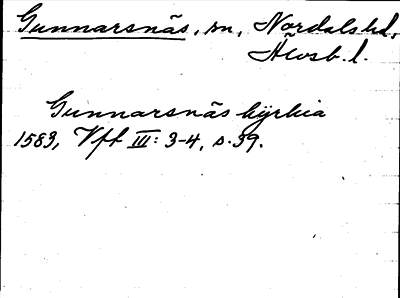 Gunnarsnäs, sn, Nordals hd,
Älvsb. l.
Gunnarsnäs kyrkia
1583, VfT III: 3-4, s. 39.